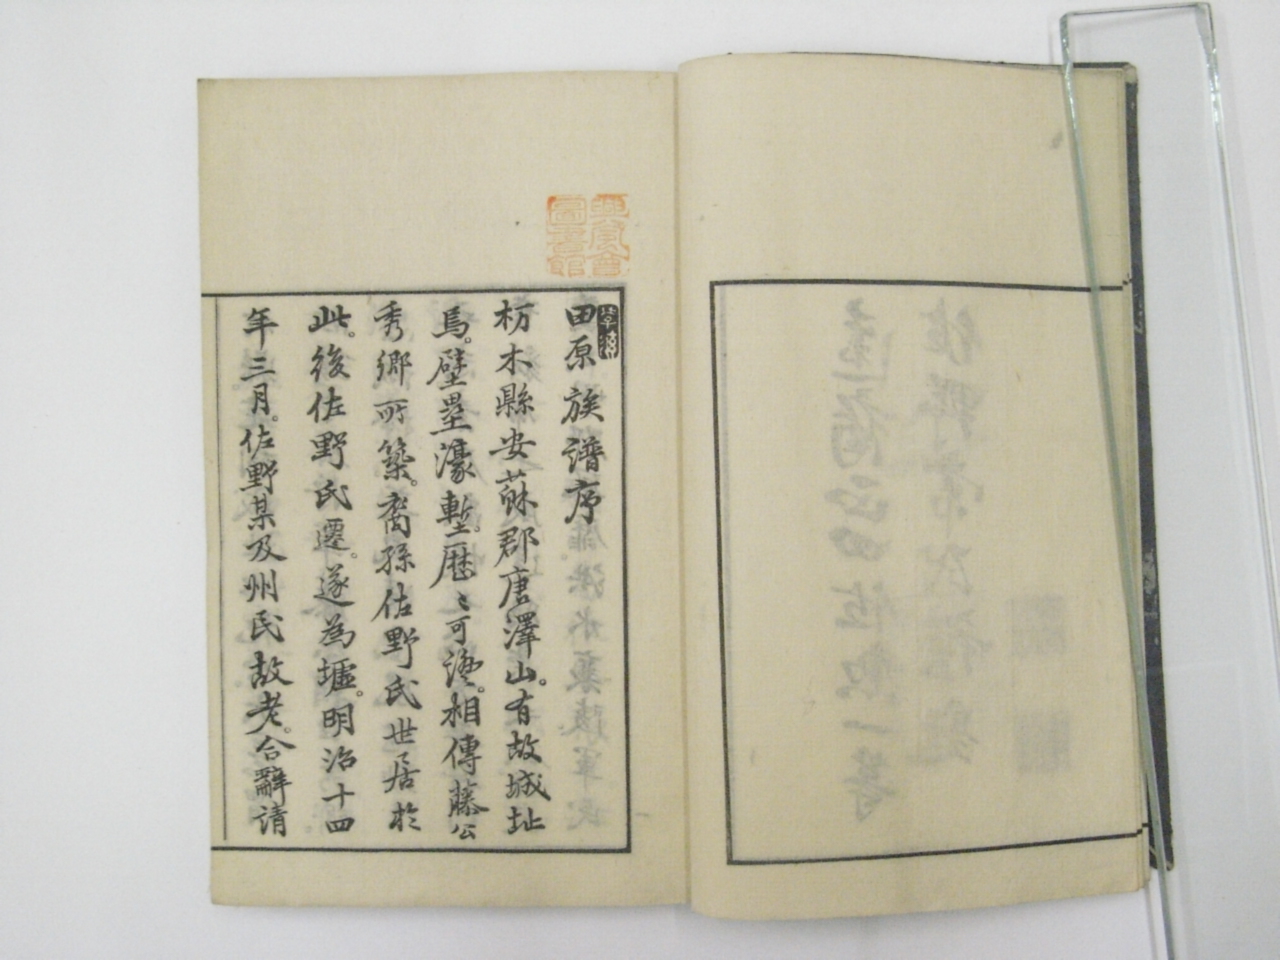 田原族譜序
枋木縣安蘇郡唐澤山。有故城址
焉。壁塁濠塹。歴〻可諗。相傳藤公
秀郷所築。裔孫佐野氏世居於
此。後佐野氏遷。遂為墟。明治十四
年三月。佐野某及州民故老。合辭請
圖書館